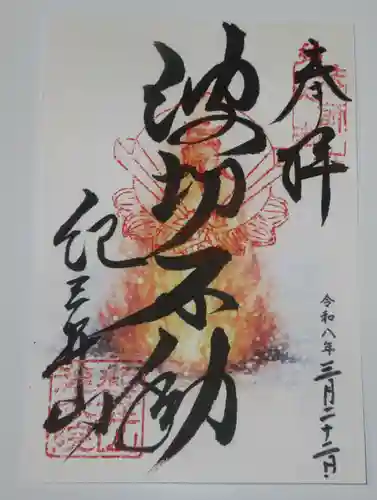 奉拝
令和八年三月二十二日
波切不動
紀三井山